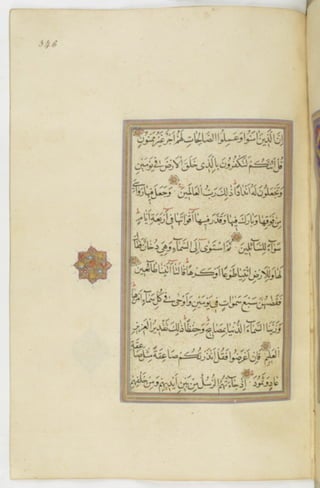 346
ان الذين امنوا وعملوا الصالحات لهم اجر غير ممنون
قل ائنكم لتكفرون بالذي خلق الارض في يومين
وتجعلون له اندادا ذلك رب العالمين وجعل فيها رواسي
من فوقها وبارك فيها وقدر فيها اقواتها في اربعة ايام
سواء للسائلين ثم استوى الى السماء وهي دخان فقال
لها وللارض ائتيا طوعا او كرها قالتا اتينا طائعين
فقضيهن سبع سموات في يومين واوحى في كل سماء امرها
وزينا السماء الدنيا بمصابيح وحفظا ذلك تقدير العزيز
العليم فان اعرضوا فقل انذرتكم صاعقة مثل صاعقة
عاد وثمود اذ جاءتهم الرسل من بين ايديهم ومن خلفهم